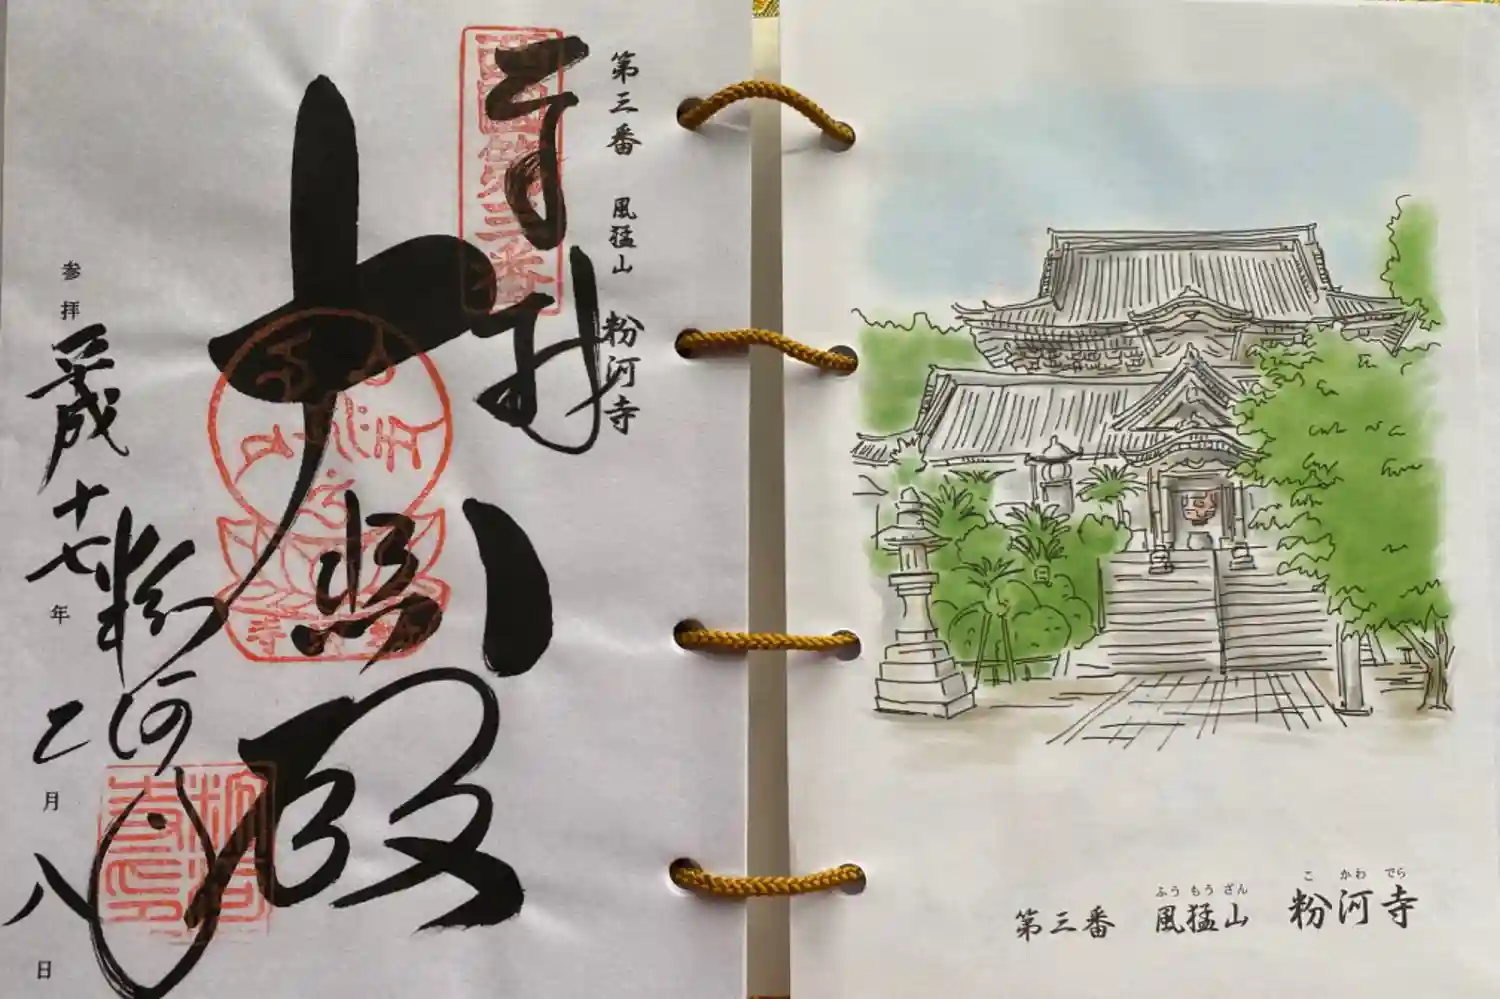 第三番 風猛山 粉河寺
奉拝
西国第三番
大悲殿
粉河寺
参拝 平成十七年 二月 八日
第三番 風猛山 粉河寺
ふうもうざん こかわでら